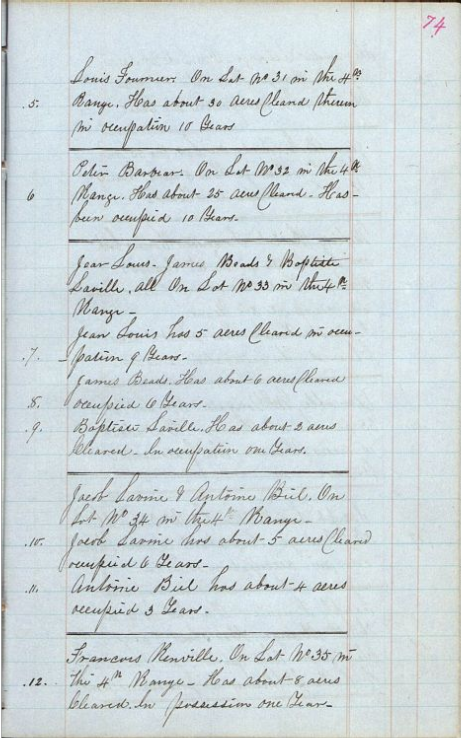 74
Louis Fournier. On Lot No 31 in the 4th
.5. Range. Has about 30 acres Cleard therein
in occupation 10 Years
Peter On Lot No 32 in the 4th
6 Range. Has about 25 acres Cleard. Has
been occupied 10 Years.
Jean Louis. James Beads & Baptiste
Laville. all On Lot No 33 in the 4th
Range -
Jean Louis has 5 acres Cleared in occu-
.7. pation 9 Years.-
James Beads. Has about 6 acres Cleared
8. occupied 6 Years.-
.9. Baptiste Laville. Has about 2 acres
Cleared - In occupation one Years.
Jacob Lavine & Antoine Biel. On
Lot No 34 in the 4th Range -
.10. Jacob Lavine has about 5 acres Cleared
occupied 6 Years.-
.11. Antoine Biel has about 4 acres
occupied 3 Years.
Francois Renville. On Lot No 35 in
.12. the 4th Range - Has about 8 acres
Cleared. In possession one Year -